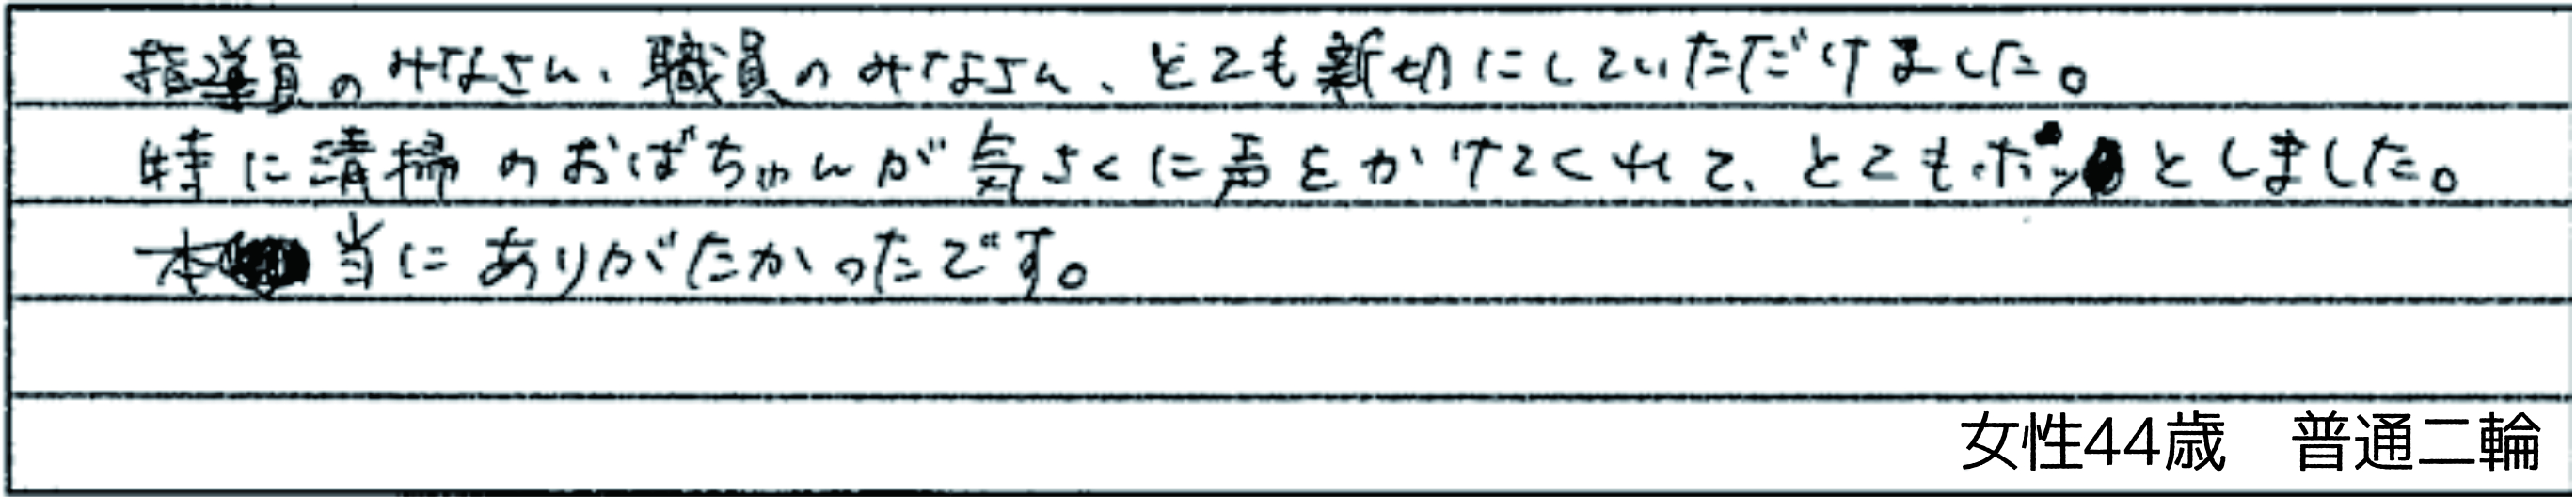 指導員のみなさん、職員のみなさん、とても新切にしていただけました。
時に清掃のおばちゃんが気さくに声をかけてくれて、とてもホッとしました。
本当にありがたかったです。
女性44歳 普通二輪